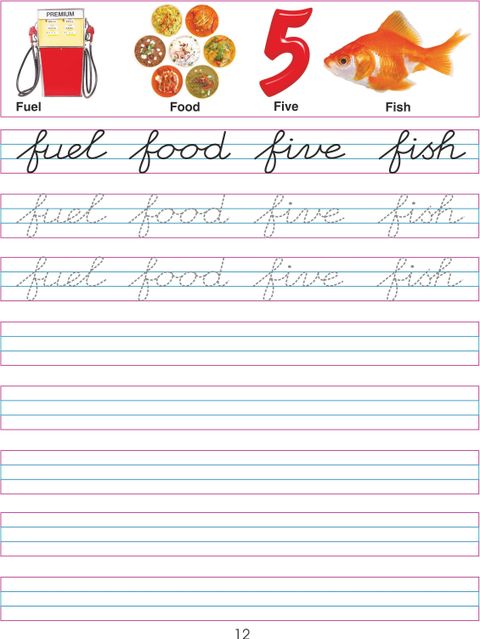 PREMIUM
Fuel Food Five Fish
fuel food five fish
fuel food five fish
fuel food five fish
12